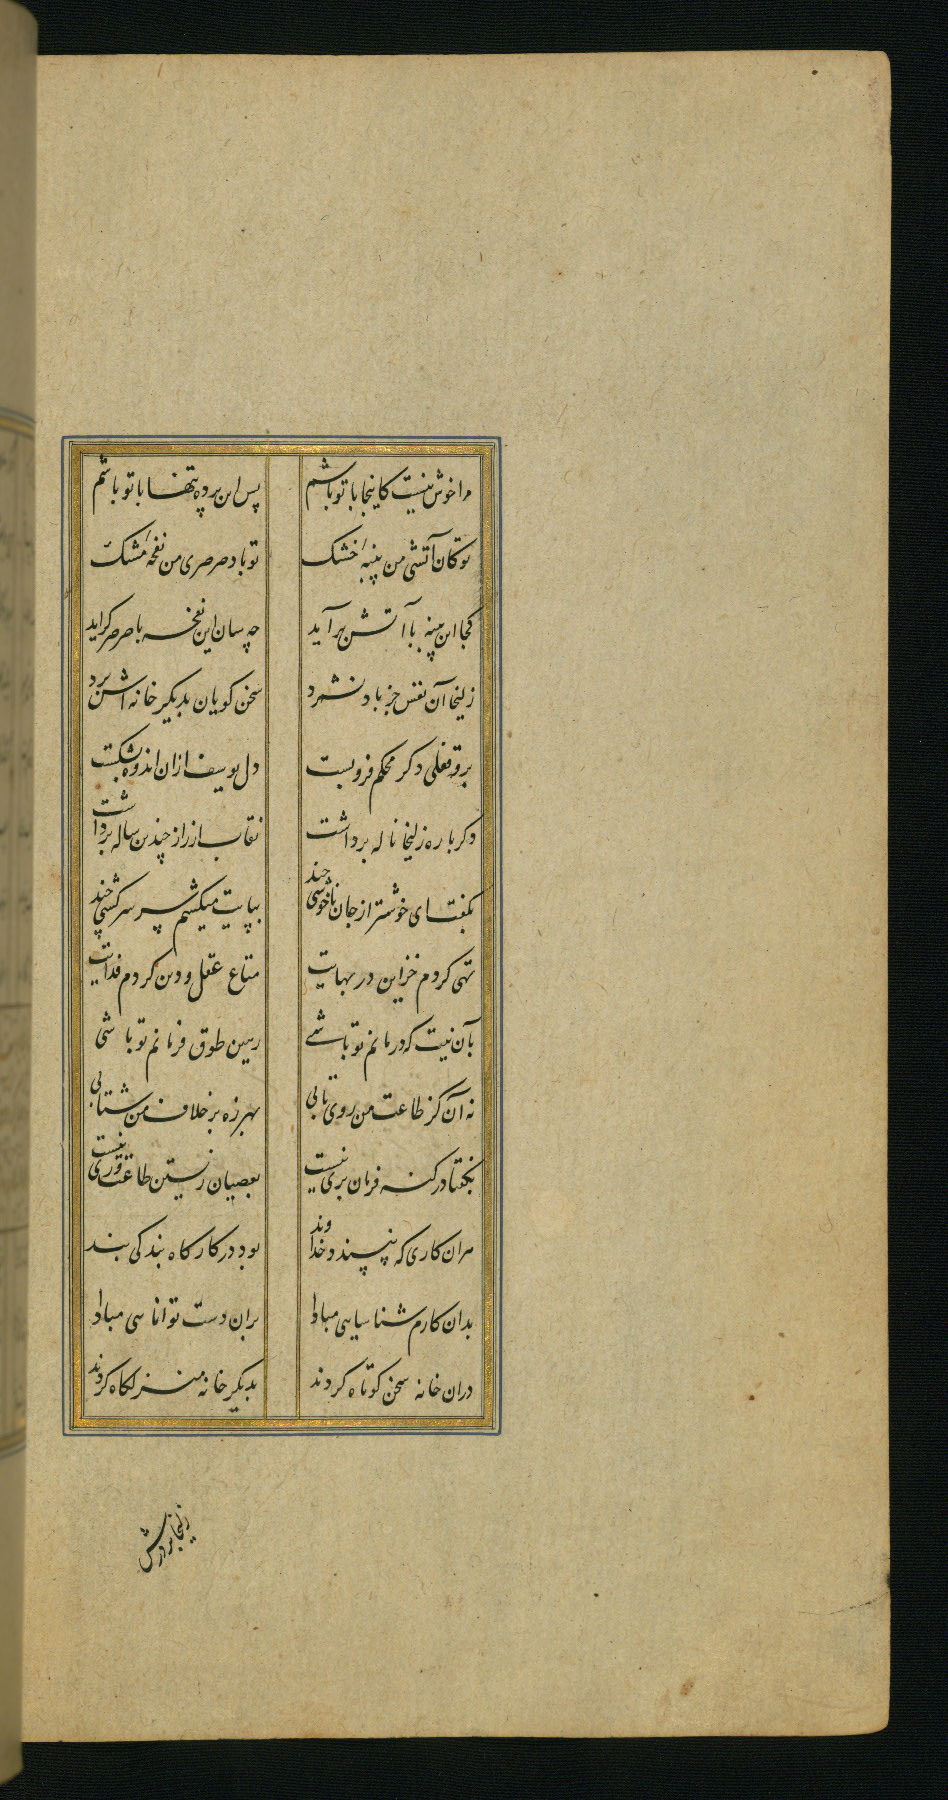 مرا خوش نیست کاینجا با تو باشم پس این پرده تنها با تو باشم
تو کان آتشی من پنبهٔ خشک تو باد صرصری من نفحهٔ مشک
کجا این پنبه با آتش برآید چه سان این نفحه با صرصر کراید
زلیخا آن نفس جز باد نشمرد سخن کویان بدیکر خانه اش برد
برو قفلی دکر محکم فروبست دل یوسف ازان اندوه بشکست
دکرباره زلیخا ناله برداشت نقاب از راز چندین ساله برداشت
بگفت ای خوشتر از جان ناخوشی چند بپایت میکشم سر سرکشی چند
تهی کردم خزاین در بهایت متاع عقل و دین کردم فدایت
بآن نیت که درمانم تو باشی رهین طوق فرمانم تو باشی
نه آن کز طاعت من روی تابی بهر ره بر خلاف من شتابی
بکفتا در کنه فرمان بری نیست بعصیان زیستن طاعت وری نیست
هران کاری که نپسندد خداوند بود در کارکاه بندکی بند
بدان کارم شناسایی مبادا بران دست توانایی مبادا
دران خانه سخن کوتاه کردند بدیکر خانه منزلکاه کردند
زلیخا بر درش